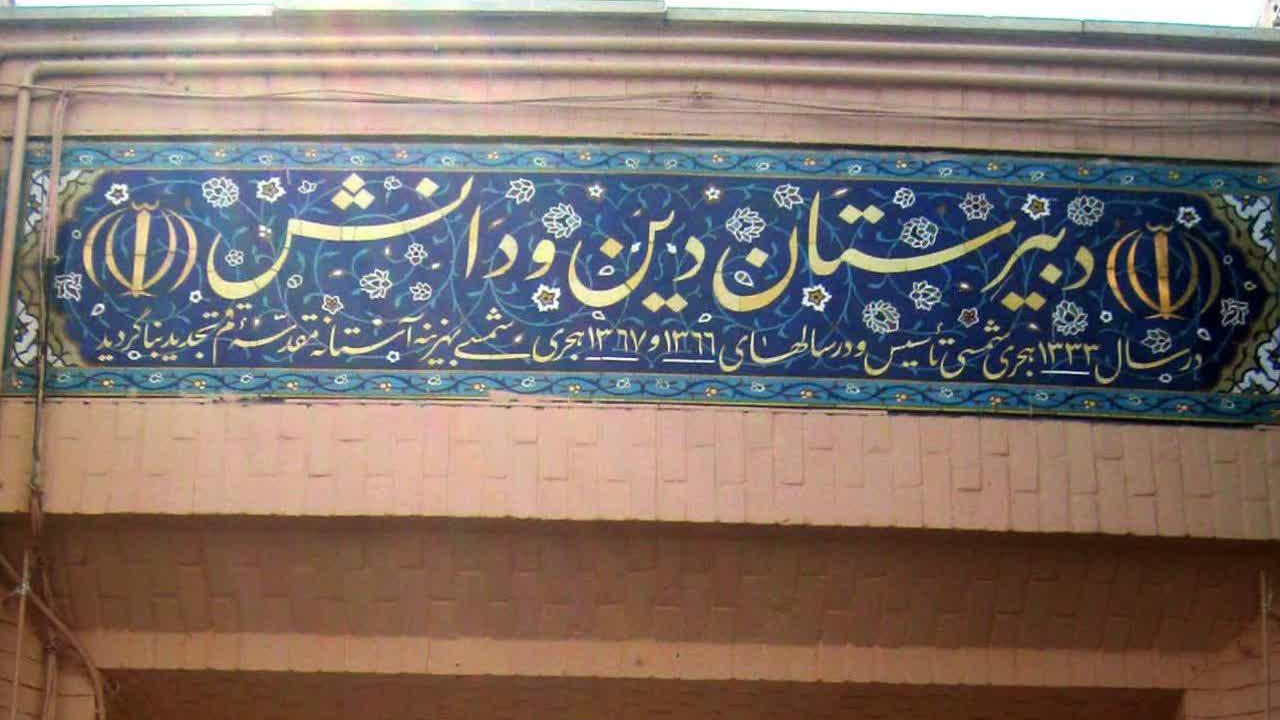 دبیرستان دین و دانش
در سال ۱۳۳۳ هجری شمسی تأسیس و در سالهای ۱۳۶۶ و ۱۳۶۷ هجری شمسی بهزینه آستانه مقدسه قم تجدید بنا گردید